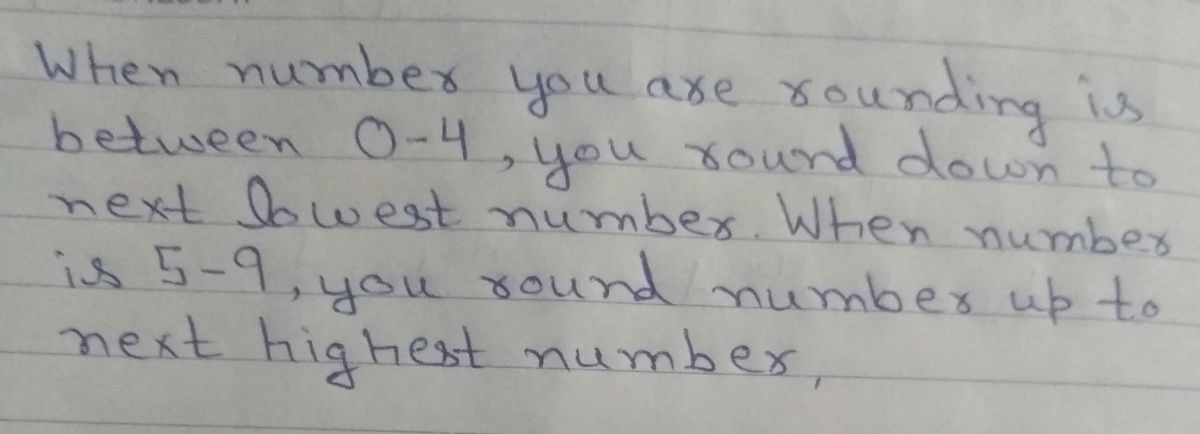 When number you are rounding is
between 0-4, you round down to
next lowest number. When number
is 5-9, you round number up to
next highest number,